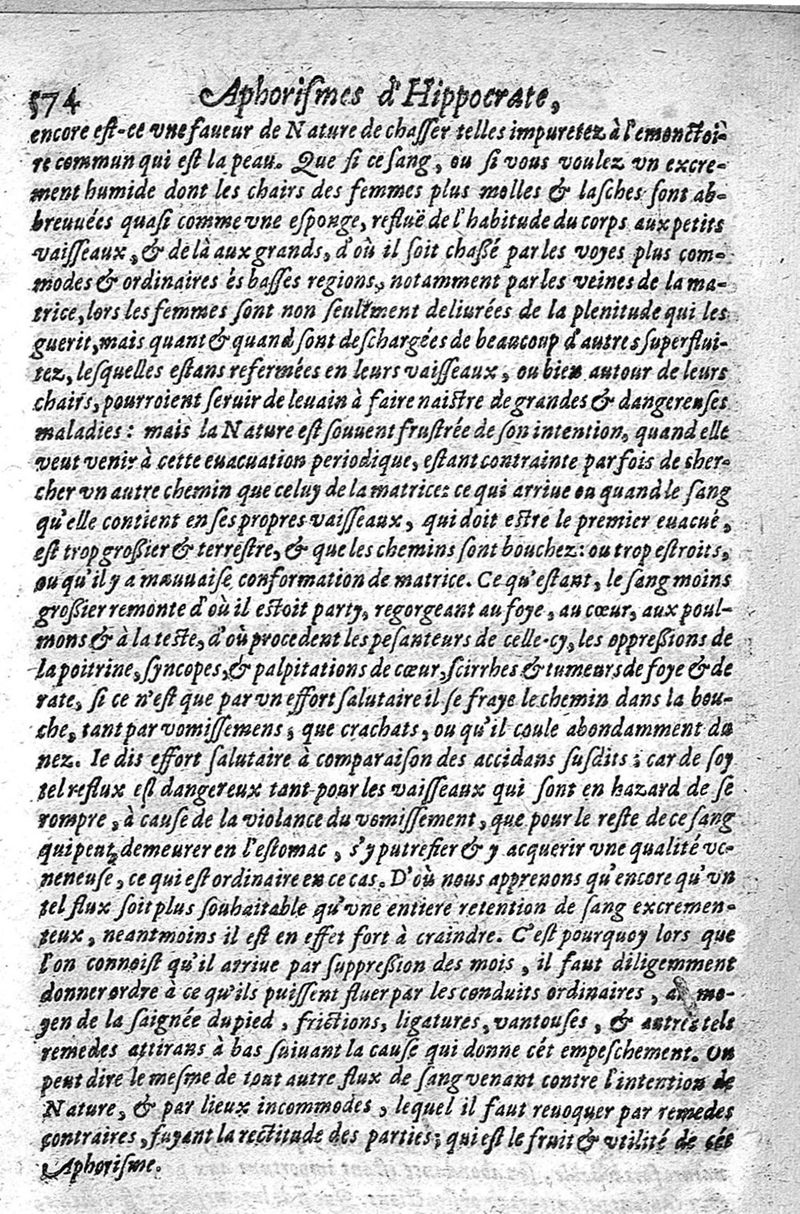 574 Aphorismes d'Hippocrate,
encore est-ce vne faueur de Nature de chasser telles impuretez à l'emonctoi-
re commun qui est la peau. Que si ce sang, ou si vous voulez vn excre-
ment humide dont les chairs des femmes plus molles & lasches sont ab-
breuuées quasi comme vne esponge, refluë de l'habitude du corps aux petits
vaisseaux, & de là aux grands, d'où il soit chassé par les voyes plus com-
modes & ordinaires ès basses regions, notamment par les veines de la ma-
trice, lors les femmes sont non seulement deliurées de la plenitude qui les
guerit, mais quant & quand sont deschargées de beaucoup d'autres superflui-
tez, lesquelles estans refermées en leurs vaisseaux, ou bien autour de leurs
chairs, pourroient seruir de leuain à faire naistre de grandes & dangereuses
maladies: mais la Nature est souuent frustrée de son intention, quand elle
veut venir à cette euacuation periodique, estant contrainte par fois de cher-
cher vn autre chemin que celuy de la matrice: ce qui arriue ou quand le sang
qu'elle contient en ses propres vaisseaux, qui doit estre le premier euacué,
est trop grossier & terrestre, & que les chemins sont bouchez: ou trop estroits,
ou qu'il y a mauuaise conformation de matrice. Ce qu'estant, le sang moins
grossier remonte d'où il estoit party, regorgeant au foye, au cœur, aux poul-
mons & à la teste, d'où procedent les pesanteurs de celle-cy, les oppressions de
la poitrine, syncopes, & palpitations de cœur, scirrhes & tumeurs de foye & de
rate, si ce n'est que par vn effort salutaire il se fraye le chemin dans la bou-
che, tant par vomissemens, que crachats, ou qu'il coule abondamment du
nez. Ie dis effort salutaire à comparaison des accidans susdits; car de soy
tel reflux est dangereux tant pour les vaisseaux qui sont en hazard de se
rompre, à cause de la violance du vomissement, que pour le reste de ce sang
qui peut demeurer en l'estomac, s'y putrefier & y acquerir vne qualité ve-
neneuse, ce qui est ordinaire en ce cas. D'où nous apprenons qu'encore qu'vn
tel flux soit plus souhaitable qu'vne entiere retention de sang excremen-
teux, neantmoins il est en effet fort à craindre. C'est pourquoy lors que
l'on connoist qu'il arriue par suppression des mois, il faut diligemment
donner ordre à ce qu'ils puissent fluer par les conduits ordinaires, au mo-
yen de la saignée du pied, frictions, ligatures, vantouses, & autres tels
remedes attirans à bas suiuant la cause qui donne cét empeschement. On
peut dire le mesme de tout autre flux de sang venant contre l'intention de
Nature, & par lieux incommodes, lequel il faut reuoquer par remedes
contraires, fuyant la rectitude des parties; qui est le fruit & vtilité de cét
Aphorisme.